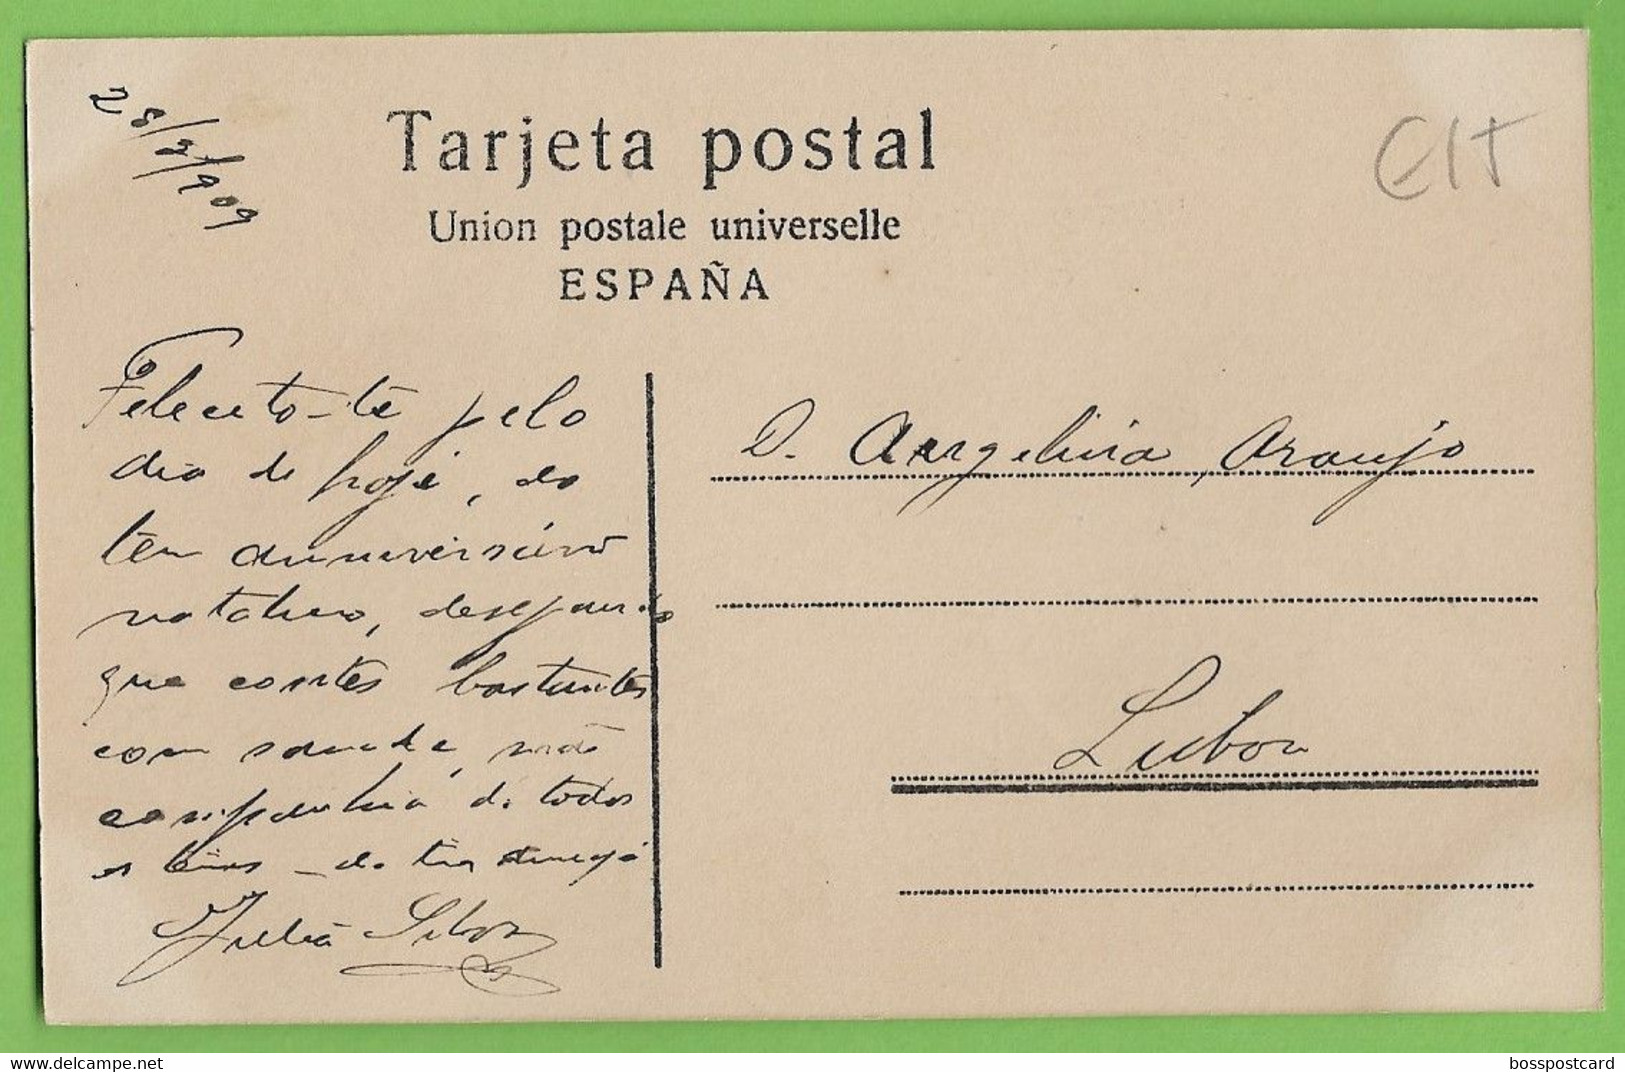 28/2/909
Tarjeta postal
Union postale universelle
ESPAÑA
Felecito-te pelo
dia de hoje, do
teu anniversário
natalicio, desejando
que contes bastantes
com saude, na
companhia de todos
os teus - da tua amiga
Julia Silva
D. Angelina Araujo
Lisboa
bosspostcard